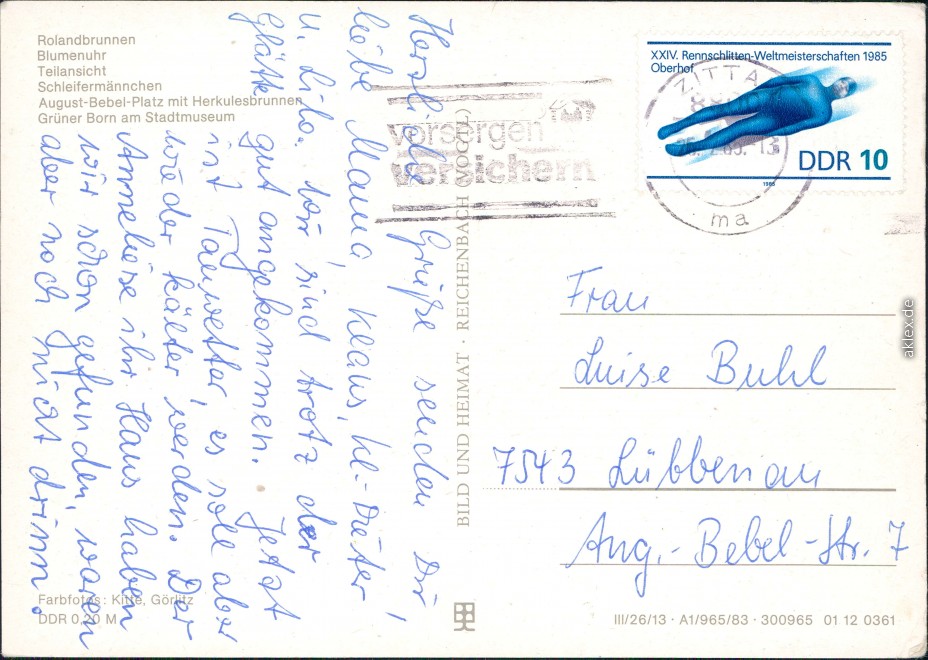 Rolandbrunnen
Blumenuhr
Teilansicht
Schleifermännchen
August-Bebel-Platz mit Herkulesbrunnen
Grüner Born am Stadtmuseum
Herzliche Grüße senden Dir
liebe Mama, Klaus, Kl.-Dieter
u. Lilo. Wir sind trotz der
Glätte gut angekommen. Jetzt
ist Tauwetter, es soll aber
wieder kälter werden. Der
Anneliese ihr Haus haben
wir schon gefunden, waren
aber noch nicht drinn.
Farbfotos: Kitte, Görlitz
DDR 0,20 M
BILD UND HEIMAT · REICHENBACH (VOGTL)
vorsorgen
versichern
XXIV. Rennschlitten-Weltmeisterschaften 1985
Oberhof
DDR 10
1985
ZITTA
ma
Frau
Luise Buhl
7543 Lübbenau
Aug.-Bebel-Str. 7
III/26/13 · A1/965/83 · 300965 01 12 0361
aklex.de